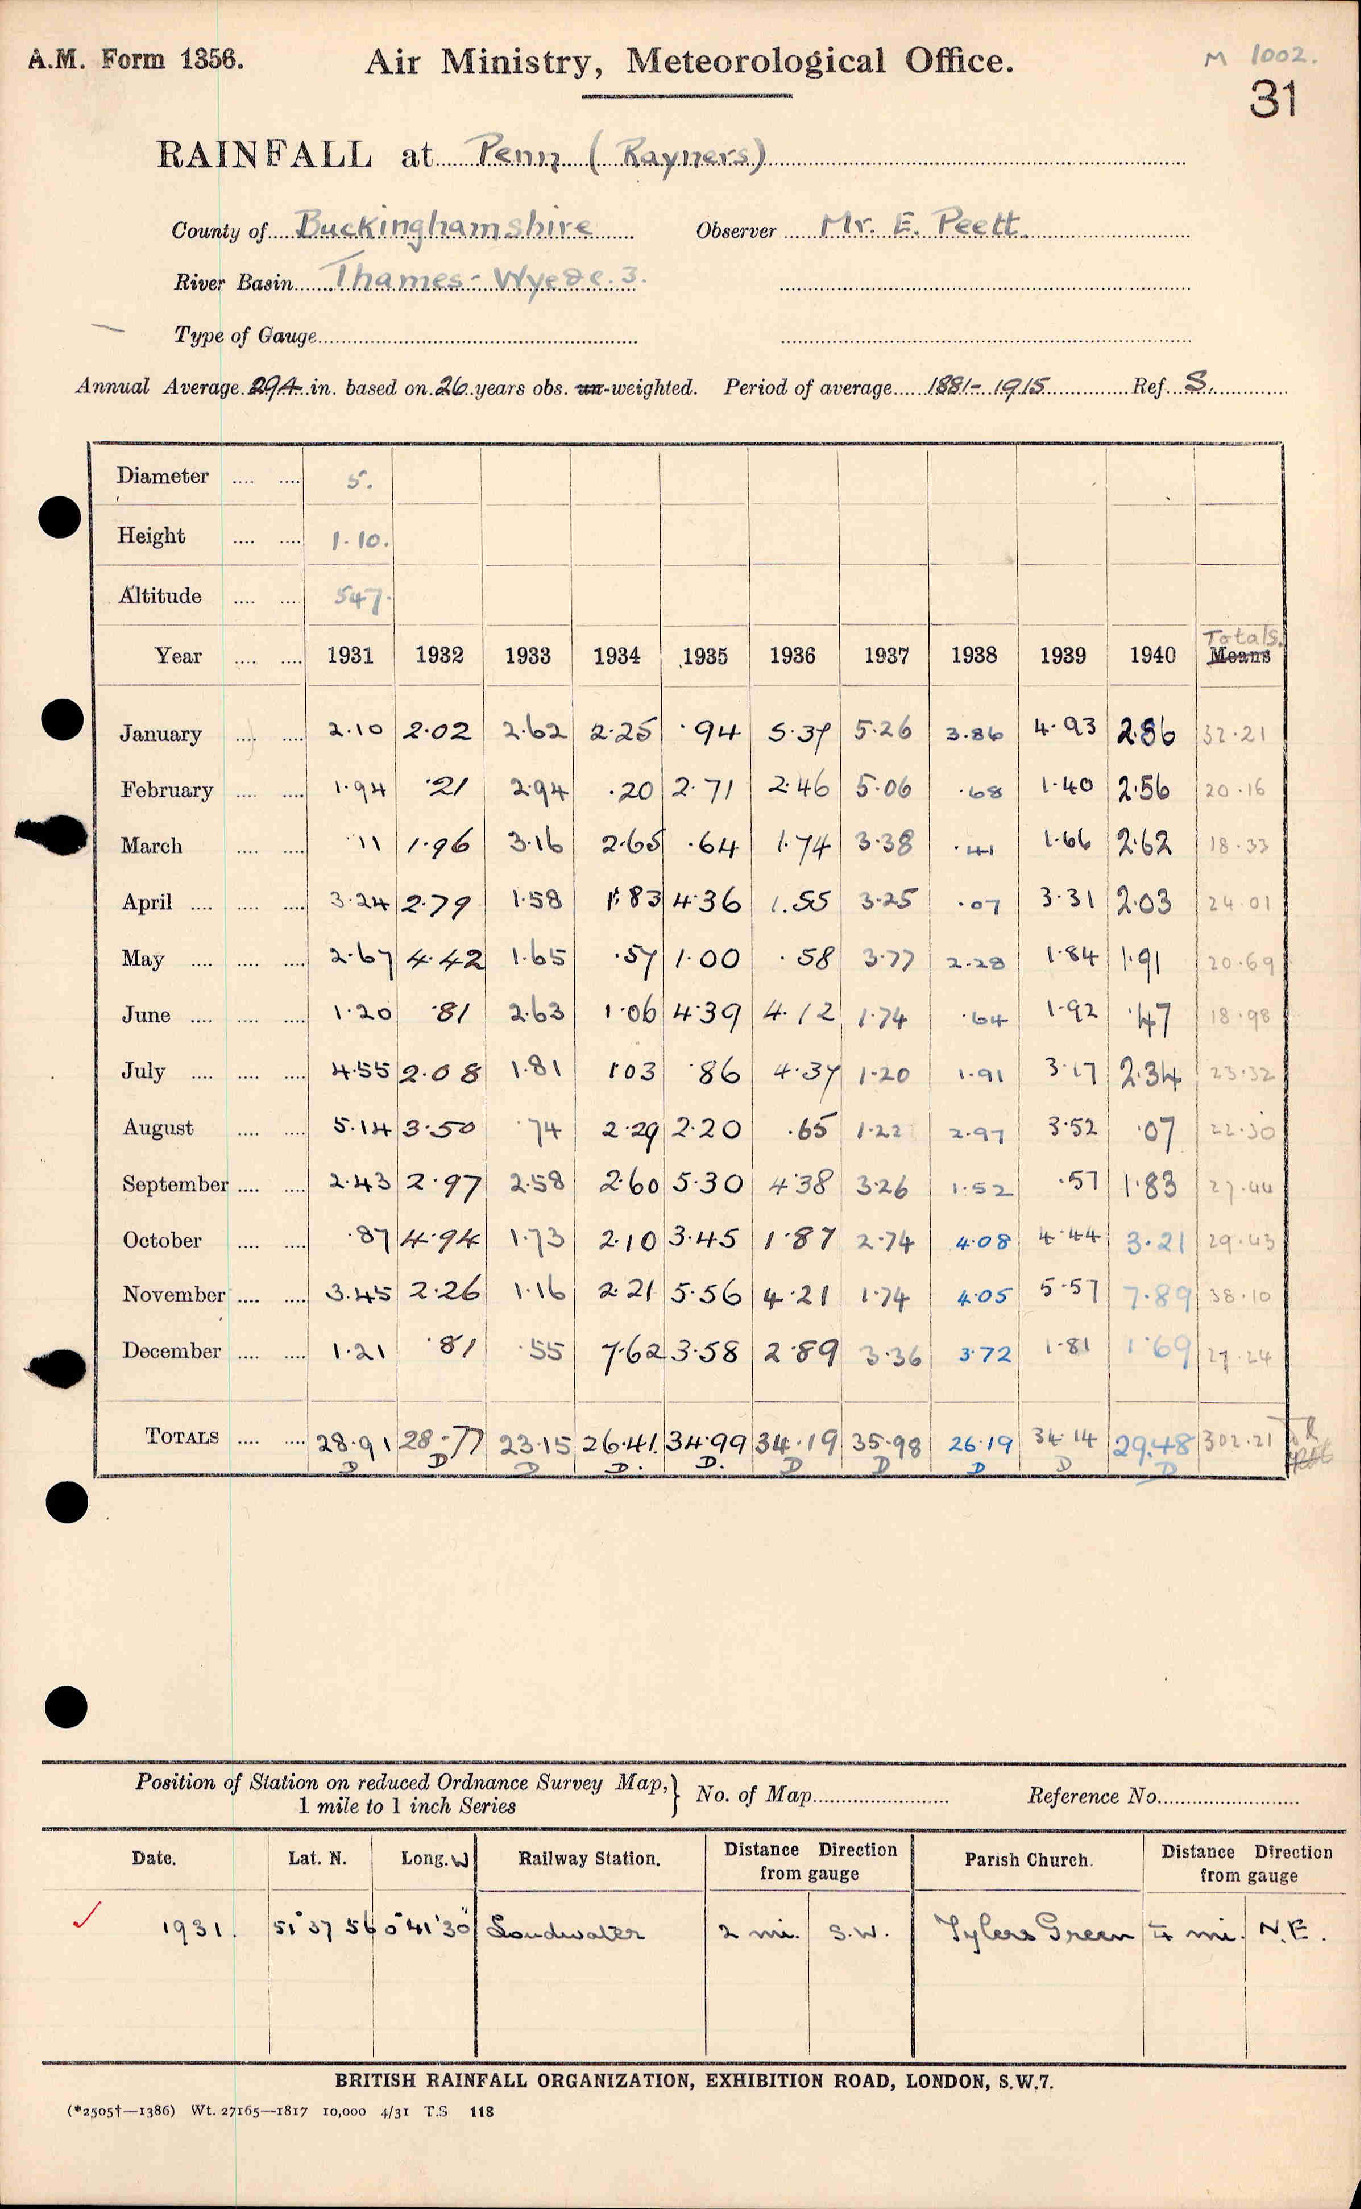 A.M. Form 1356. Air Ministry, Meteorological Office. M 1002.
31
RAINFALL at Penn (Rayners)
County of Buckinghamshire Observer Mr. E. Peett.
River Basin Thames - Wye &c. 3.
Type of Gauge
Annual Average 29.4 in. based on 26 years obs. un-weighted. Period of average 1881-1915 Ref. S.
Diameter 5.
Height 1.10.
Altitude 547.
Totals.
Year 1931 1932 1933 1934 1935 1936 1937 1938 1939 1940 Means
January 2.10 2.02 2.62 2.25 .94 5.37 5.26 3.86 4.93 2.86 32.21
February 1.94 .21 2.94 .20 2.71 2.46 5.06 .68 1.40 2.56 20.16
March .11 1.96 3.16 2.65 .64 1.74 3.38 .41 1.66 2.62 18.33
April 3.24 2.79 1.58 1.83 4.36 1.55 3.25 .07 3.31 2.03 24.01
May 2.67 4.42 1.65 .57 1.00 .58 3.77 2.28 1.84 1.91 20.69
June 1.20 .81 2.63 1.06 4.39 4.12 1.74 .64 1.92 .47 18.98
July 4.55 2.08 1.81 1.03 .86 4.37 1.20 1.91 3.17 2.34 23.32
August 5.14 3.50 .74 2.29 2.20 .65 1.22 2.97 3.52 .07 22.30
September 2.43 2.97 2.58 2.60 5.30 4.38 3.26 1.52 .57 1.83 27.44
October .87 4.94 1.73 2.10 3.45 1.87 2.74 4.08 4.44 3.21 29.43
November 3.45 2.26 1.16 2.21 5.56 4.21 1.74 4.05 5.57 7.89 38.10
December 1.21 .81 .55 7.62 3.58 2.89 3.36 3.72 1.81 1.69 27.24
TOTALS 28.91 28.77 23.15 26.41 34.99 34.19 35.98 26.19 34.14 29.48 302.21
D D D D. D. D D D D D
Position of Station on reduced Ordnance Survey Map, } No. of Map Reference No.
1 mile to 1 inch Series
Date. Lat. N. Long. W Railway Station. Distance Direction from gauge Parish Church. Distance Direction from gauge
1931. 51° 37 56 0° 41' 30" Loudwater 2 mi. S.W. Tylers Green ¼ mi. N.E.
BRITISH RAINFALL ORGANIZATION, EXHIBITION ROAD, LONDON, S.W.7.
(*2505†—1386) Wt. 27165—1817 10,000 4/31 T.S 118